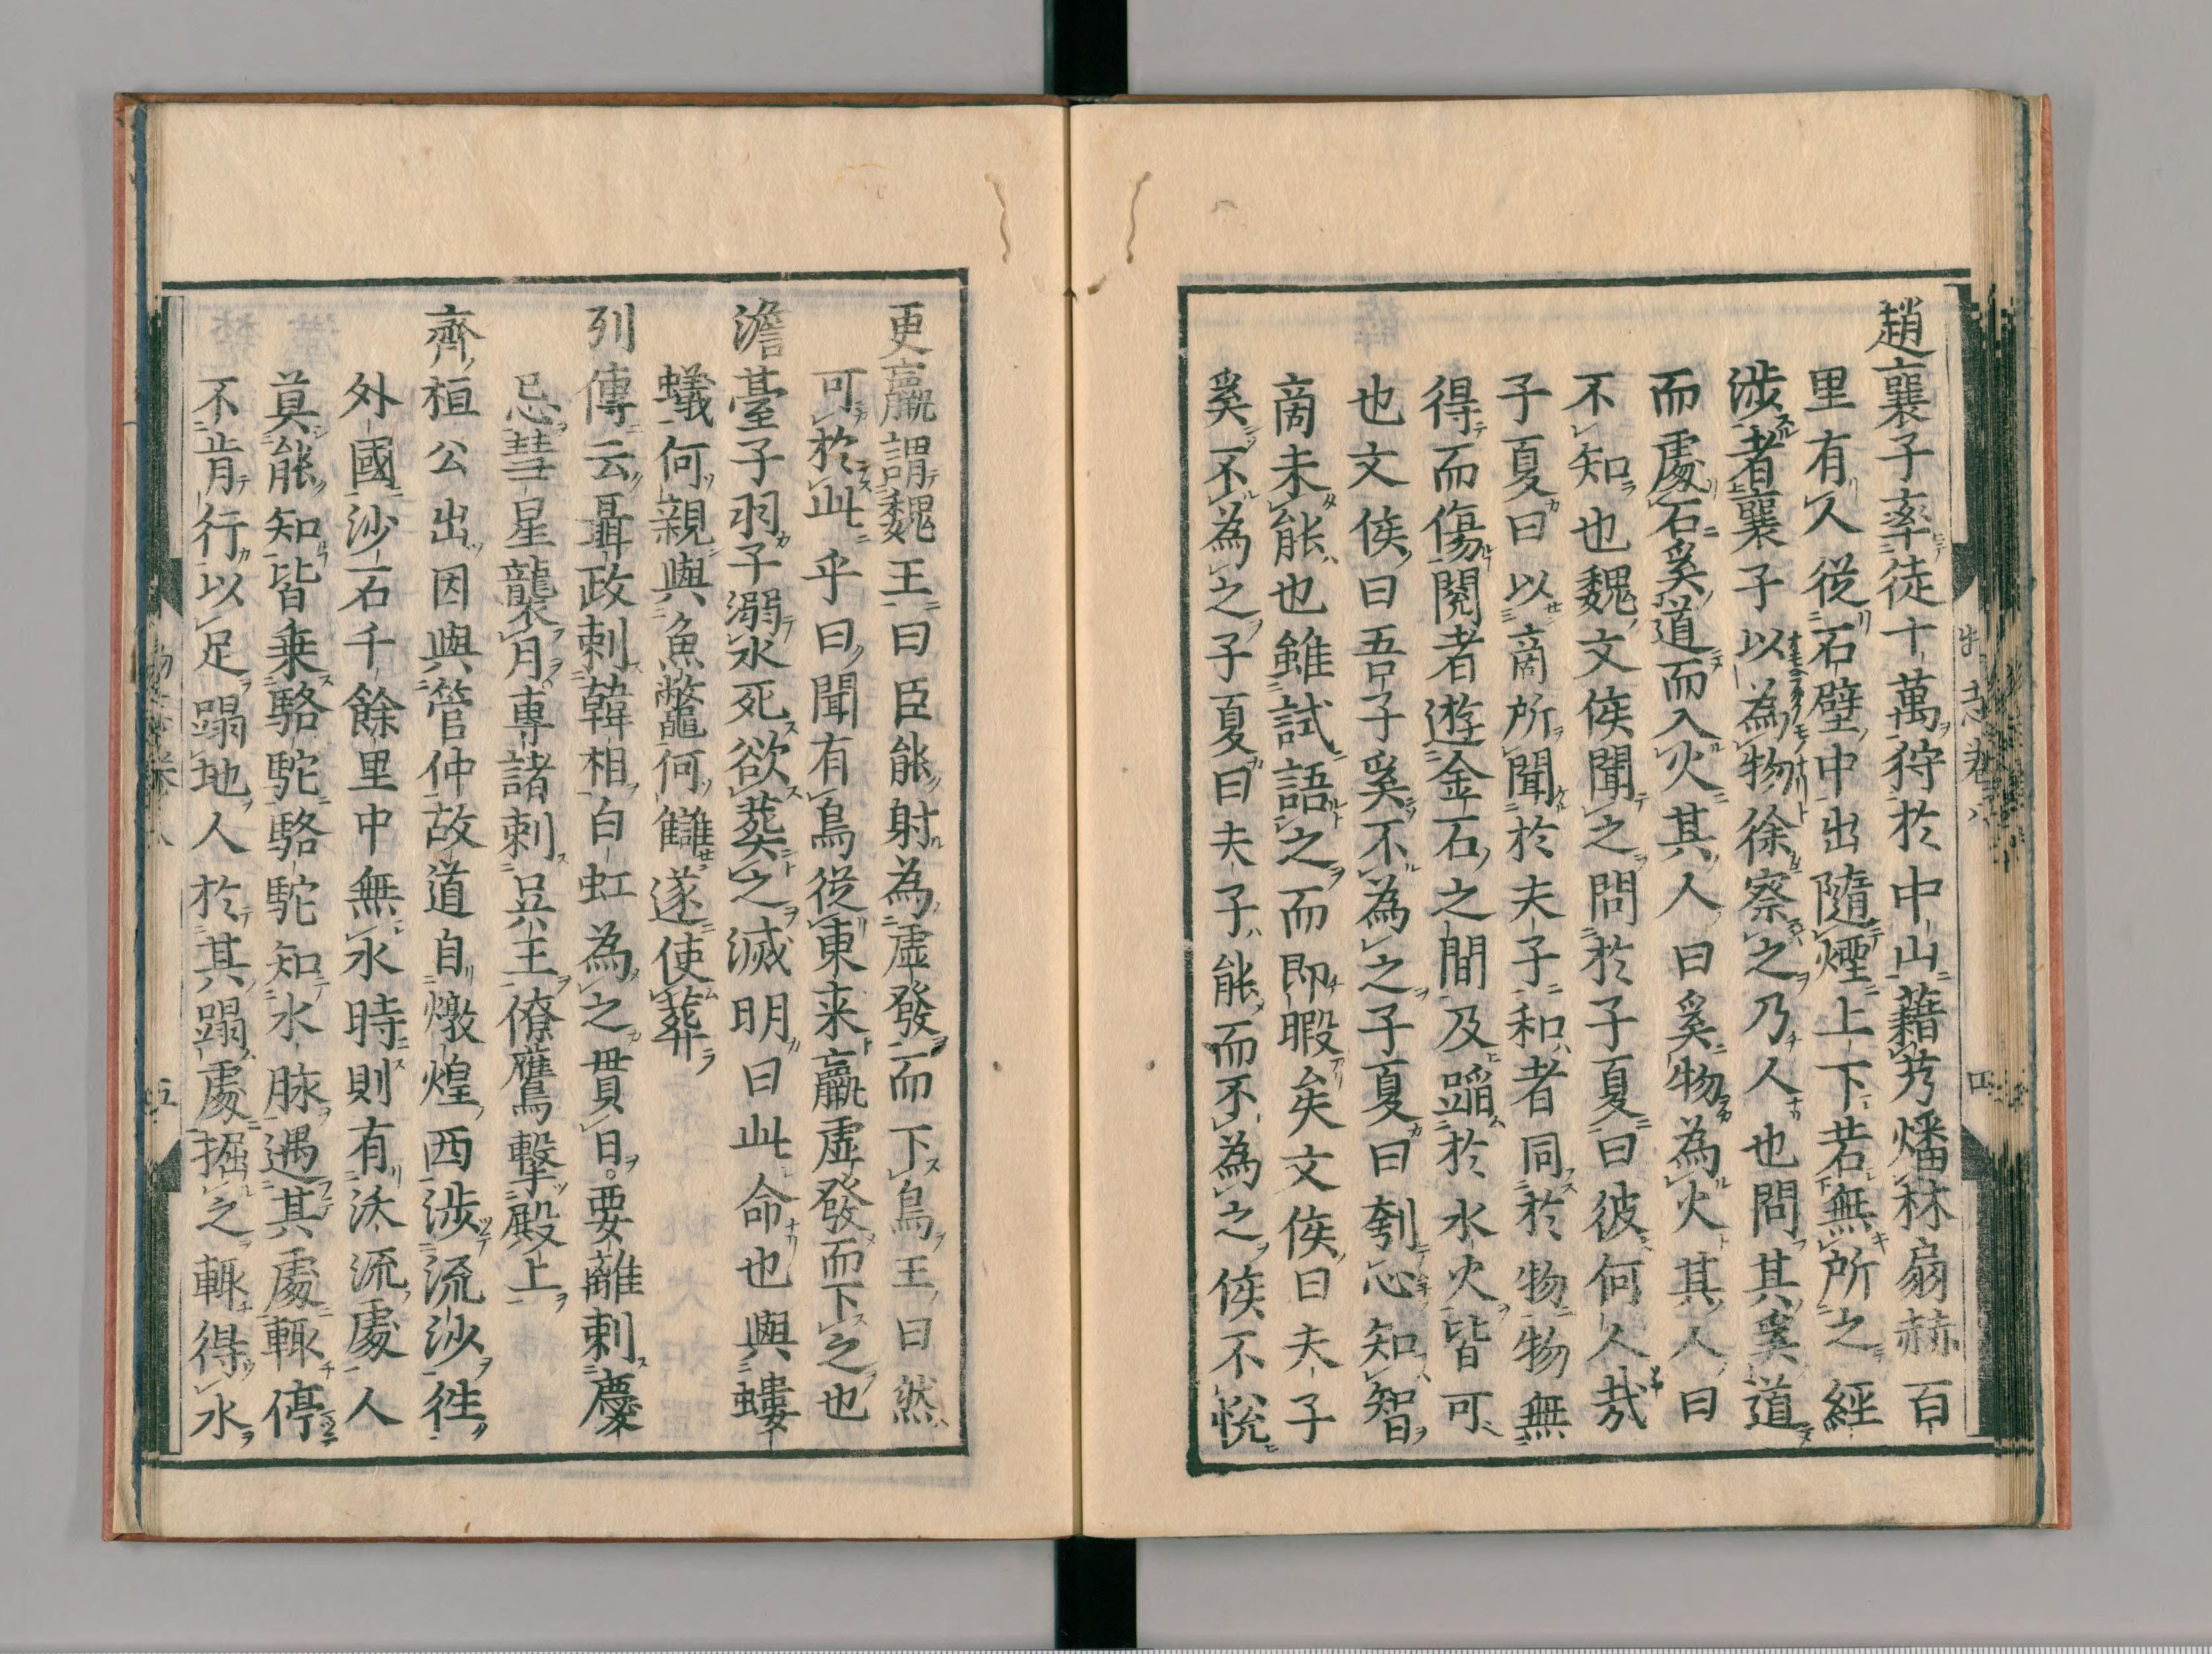 趙襄子率徒十萬狩於中山藉艿燔林扇赫百
里有人從石壁中出隨煙上下若無所之經
涉者襄子以為物徐察之乃人也問其奚道
而處石奚道而入火其人曰奚物為火其人曰
不知也魏文侯聞之問於子夏曰彼何人哉
子夏曰以商所聞於夫子和者同於物物無
得而傷閱者遊金石之間及蹈於水火皆可
也文侯曰吾子奚不為之子夏曰刳心知智
商未能也雖試語之而即暇矣文侯曰夫子
奚不為之子夏曰夫子能而不為之侯不悅
更羸謂魏王曰臣能射為虛發而下鳥王曰然
可於此乎曰聞有鳥從東来羸虛發而下之也
澹臺子羽子溺水死欲葬之滅明曰此命也與螻
蟻何親與魚鱉何讎遂使葬
列傳云聶政刺韓相白虹為之貫日。要離刺慶
忌彗星襲月。專諸刺吳王僚鷹擊殿上
齊桓公出因與管仲故道自燉煌西涉流沙徃
外國沙石千餘里中無水時則有沃流處人
莫能知皆乗駱駝駱駝知水脉遇其處輒停
不肯行以足蹋地人於其蹋處掘之輒得水